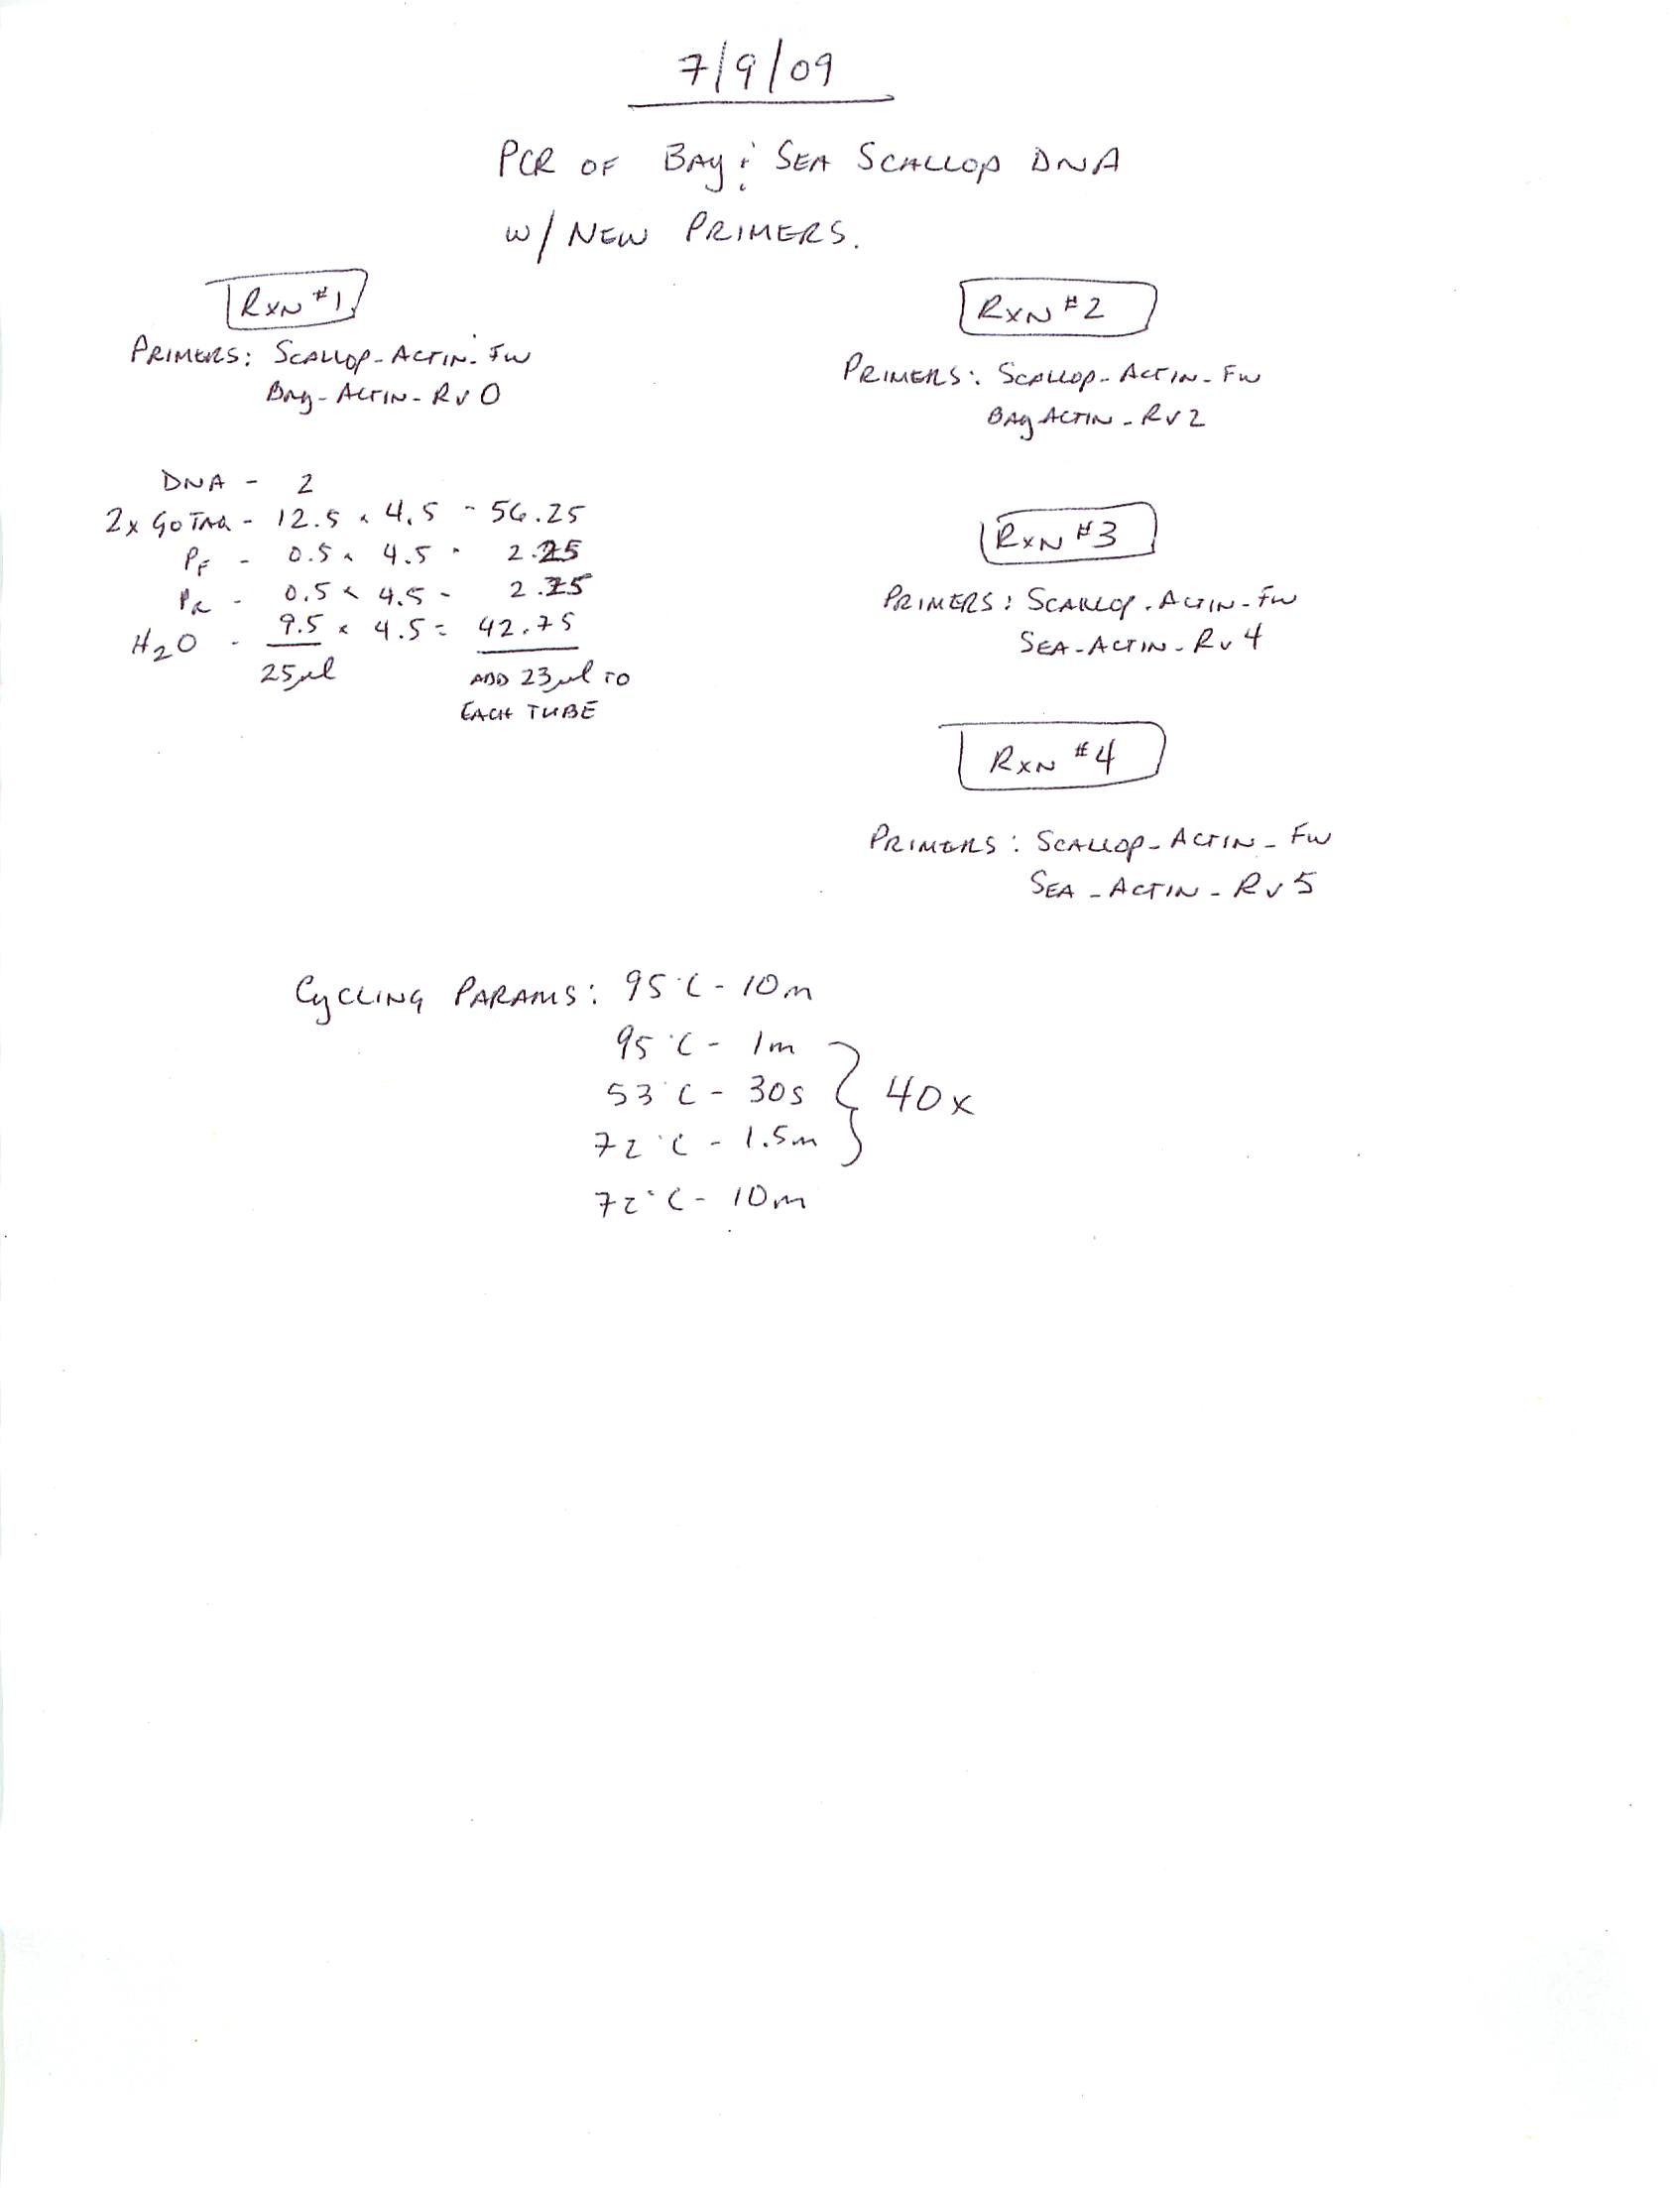 7/9/09
PCR OF BAY & SEA SCALLOP DNA
W/ NEW PRIMERS.
RXN #1
PRIMERS: SCALLOP-ACTIN-FW
BAY-ACTIN-RV0
DNA - 2
2x GOTAQ - 12.5 x 4.5 = 56.25
PF - 0.5 x 4.5 = 2.25
PR - 0.5 x 4.5 = 2.25
H2O - 9.5 x 4.5 = 42.75
25µl ADD 23µl TO
EACH TUBE
RXN #2
PRIMERS: SCALLOP-ACTIN-FW
BAY ACTIN-RV2
RXN #3
PRIMERS: SCALLOP-ACTIN-FW
SEA-ACTIN-RV4
RXN #4
PRIMERS: SCALLOP-ACTIN-FW
SEA-ACTIN-RV5
CYCLING PARAMS: 95°C - 10m
95°C - 1m
53°C - 30s } 40x
72°C - 1.5m
72°C - 10m